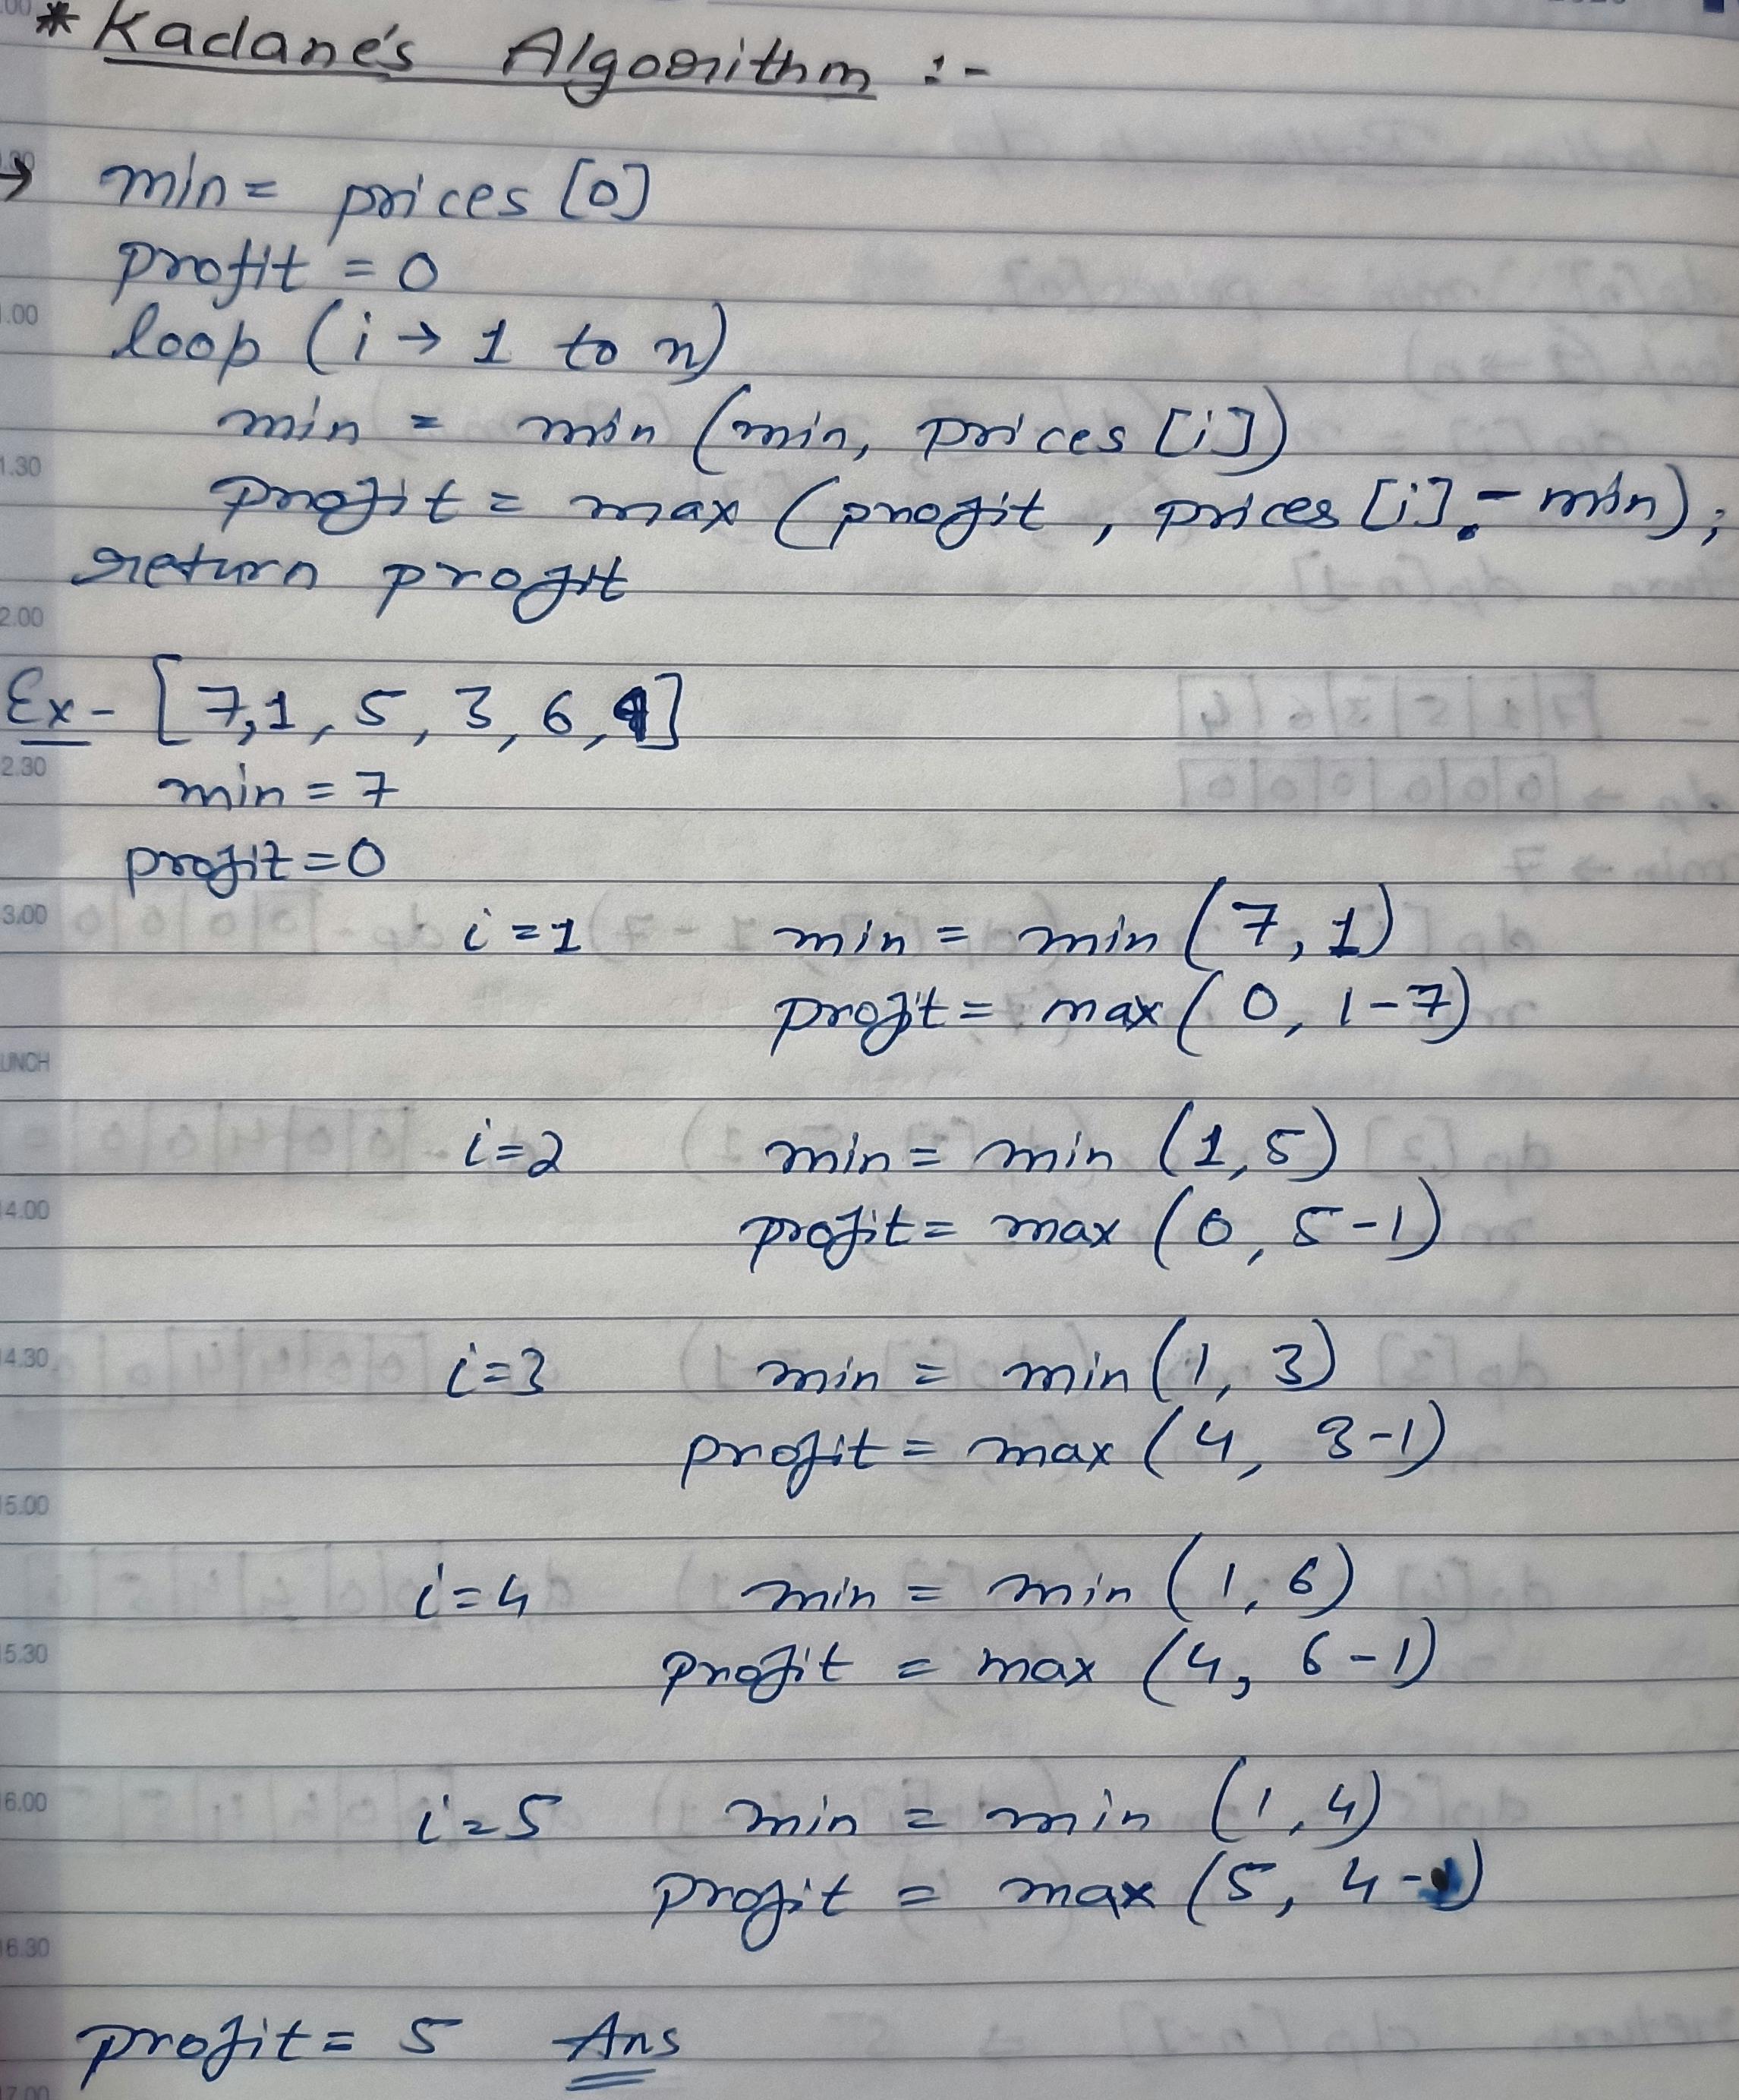 * Kadane's Algorithm :-
→ min = prices [0]
profit = 0
loop (i → 1 to n)
min = min (min, prices [i])
profit = max (profit , prices [i] - min);
return profit
Ex - [7,1, 5, 3, 6, 4]
min = 7
profit = 0
i = 1 min = min (7, 1)
profit = max (0, 1-7)
i=2 min = min (1, 5)
profit = max (0, 5-1)
i=3 min = min (1, 3)
profit = max (4, 3-1)
i=4 min = min (1, 6)
profit = max (4, 6-1)
i=5 min = min (1, 4)
profit = max (5, 4-1)
profit = 5 Ans